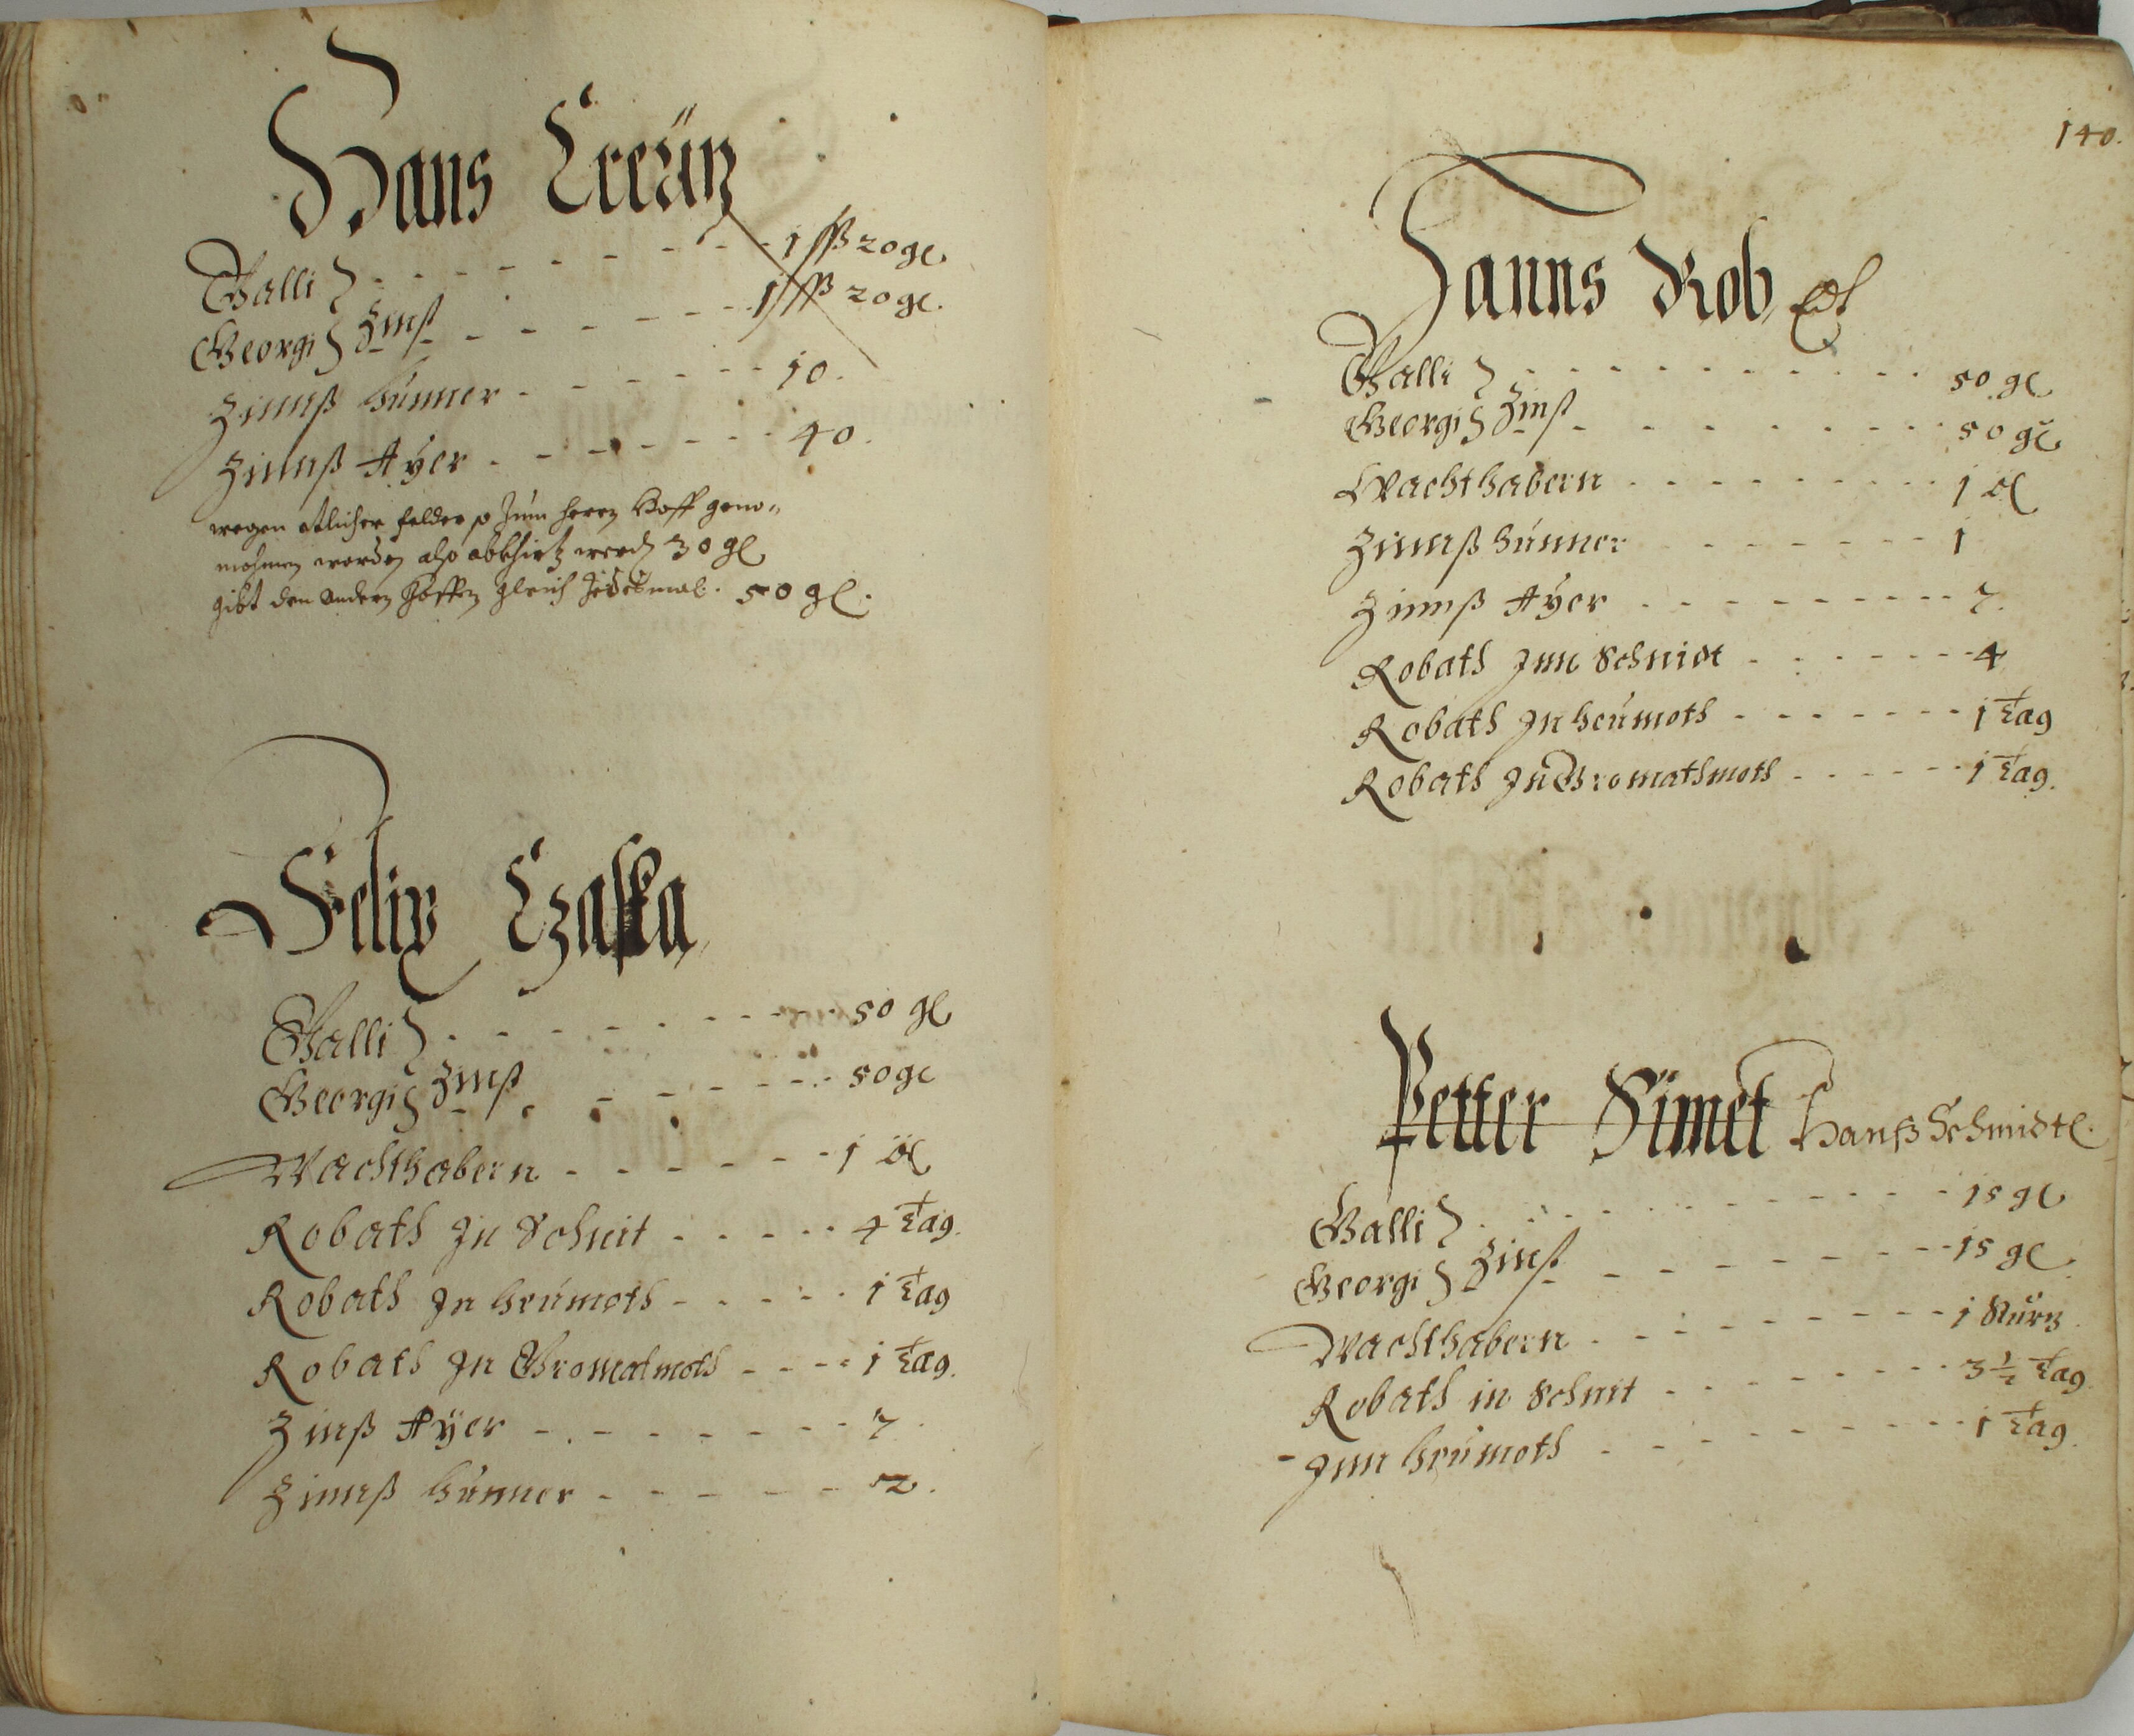 Hans Creütz
Galli - - - - - - - - 1 ßß 20 gl
Georgi Zinß - - - - - - 1 ßß 20 gl.
Zinnß hünner - - - - - - 10.
Zinnß Ayer - - - - - - 40.
wegen etlicher felder so zum herrn Hoff geno-
mohmen worden also abkhirtz werd 30 gl
gibt den andern Höffen gleich Jedesmal. 50 gl.
Felix Czaska
Galli - - - - - - - - - 50 gl
Georgi Zinß - - - - - - 50 gl
Wachthabern - - - - - - 1
Robath In Schnit - - - - - 4 Tag.
Robath In heümoth - - - - - 1 Tag
Robath In Gromatmoth - - - - 1 Tag.
Zinß Aÿer - - - - - - - - 7.
Zinnß hünner - - - - - - 2.
140.
Hanns Rob
Galli - - - - - - - - - - 50 gl
Georgi Zinß - - - - - - - - 50 gl
Wachthabern - - - - - - - - - 1
Zinnß hünner - - - - - - - 1
Zinnß Aÿer - - - - - - - - - 7.
Robath Inn Schnidt - - - - - - - 4
Robath In heümoth - - - - - - - 1 Tag
Robath In Gromathmoth - - - - - - 1 Tag.
Petter Simet Hanß Schmidtl.
Galli - - - - - - - - - - 15 gl
Georgi Zinß - - - - - - - - 15 gl
Wachthabern - - - - - - - - - 1
Robath in Schnit - - - - - - - - 3 1/2 Tag
- Inn heümoth - - - - - - - - - 1 Tag.